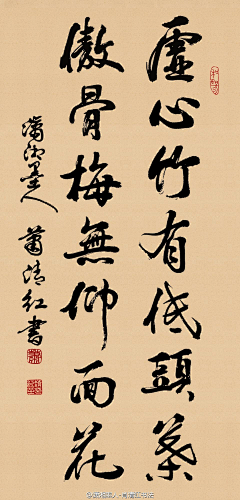 虛心竹有低頭葉
傲骨梅無仰面花
瀟湘墨人 蕭清紅書